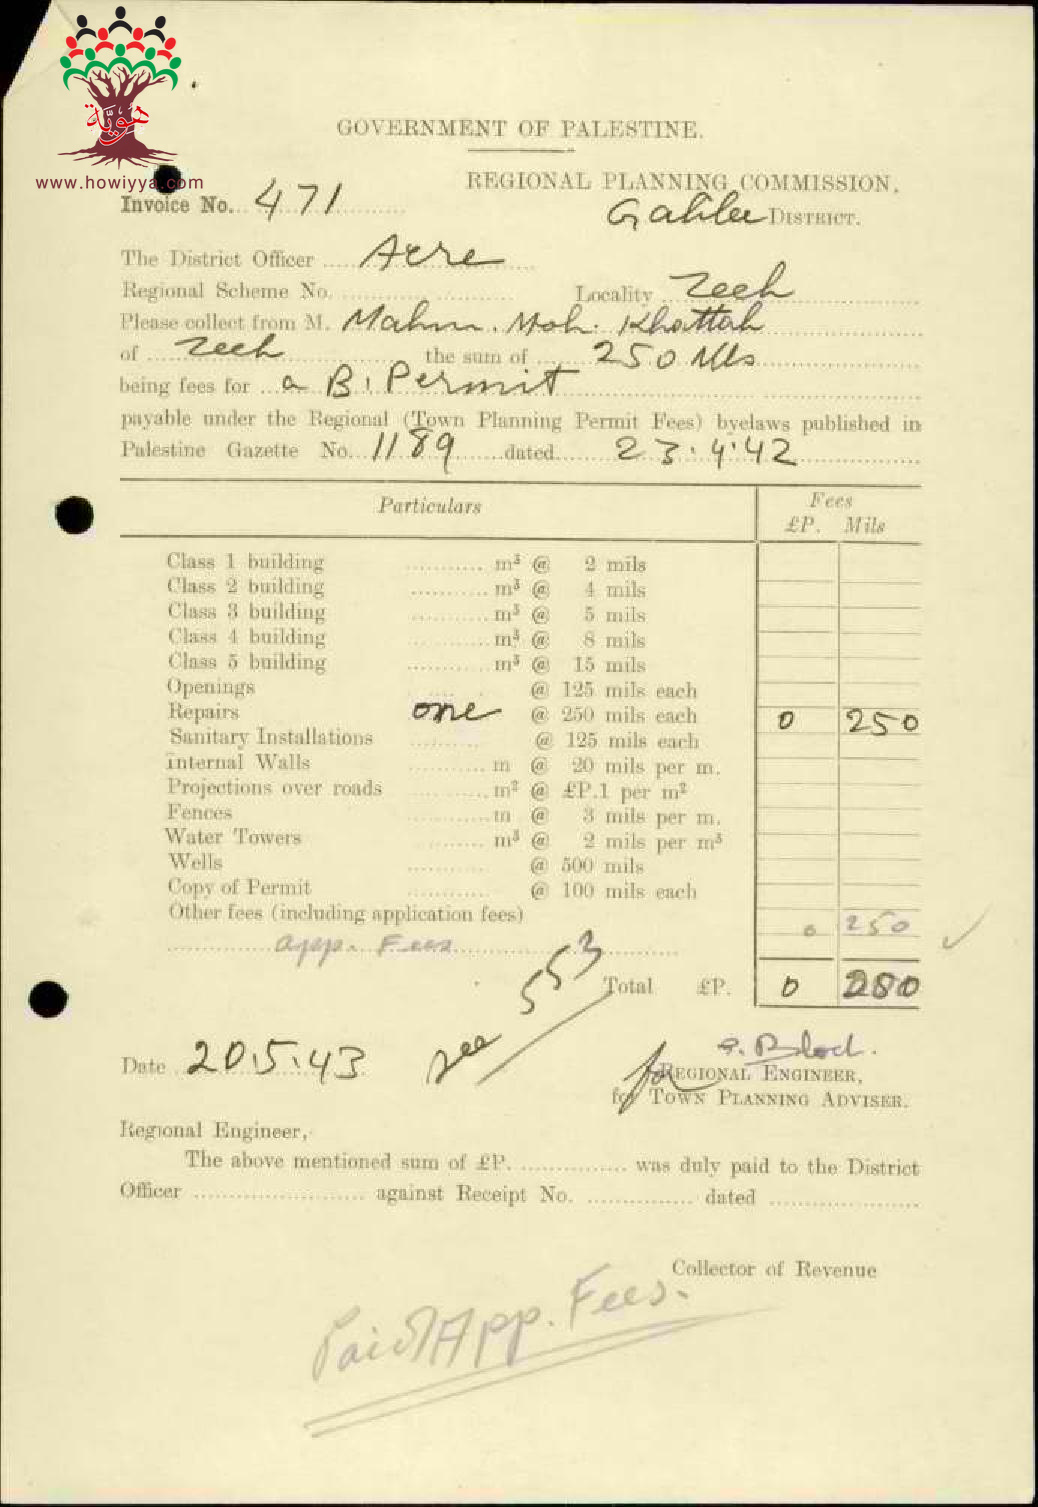 هوية
www.howiyya.com
GOVERNMENT OF PALESTINE.
REGIONAL PLANNING COMMISSION,
Invoice No. 471
Galilee DISTRICT.
The District Officer Acre
Regional Scheme No. Locality Zeeb
Please collect from M. Mahm. Moh. Khattab
of Zeeb the sum of 250 Mls
being fees for a B. Permit
payable under the Regional (Town Planning Permit Fees) byelaws published in
Palestine Gazette No. 1189 dated 23.4.42
Particulars Fees
£P. Mils
Class 1 building m³ @ 2 mils
Class 2 building m³ @ 4 mils
Class 3 building m³ @ 5 mils
Class 4 building m³ @ 8 mils
Class 5 building m³ @ 15 mils
Openings @ 125 mils each
Repairs one @ 250 mils each 0 250
Sanitary Installations @ 125 mils each
Internal Walls m @ 20 mils per m.
Projections over roads m² @ £P.1 per m²
Fences m @ 3 mils per m.
Water Towers m³ @ 2 mils per m³
Wells @ 500 mils
Copy of Permit @ 100 mils each
Other fees (including application fees)
app. Fees 0 250
553
Total £P. 0 250
Date 20.5.43
for REGIONAL ENGINEER,
for TOWN PLANNING ADVISER.
Regional Engineer,
The above mentioned sum of £P. was duly paid to the District
Officer against Receipt No. dated
Collector of Revenue
Paid App. Fees.